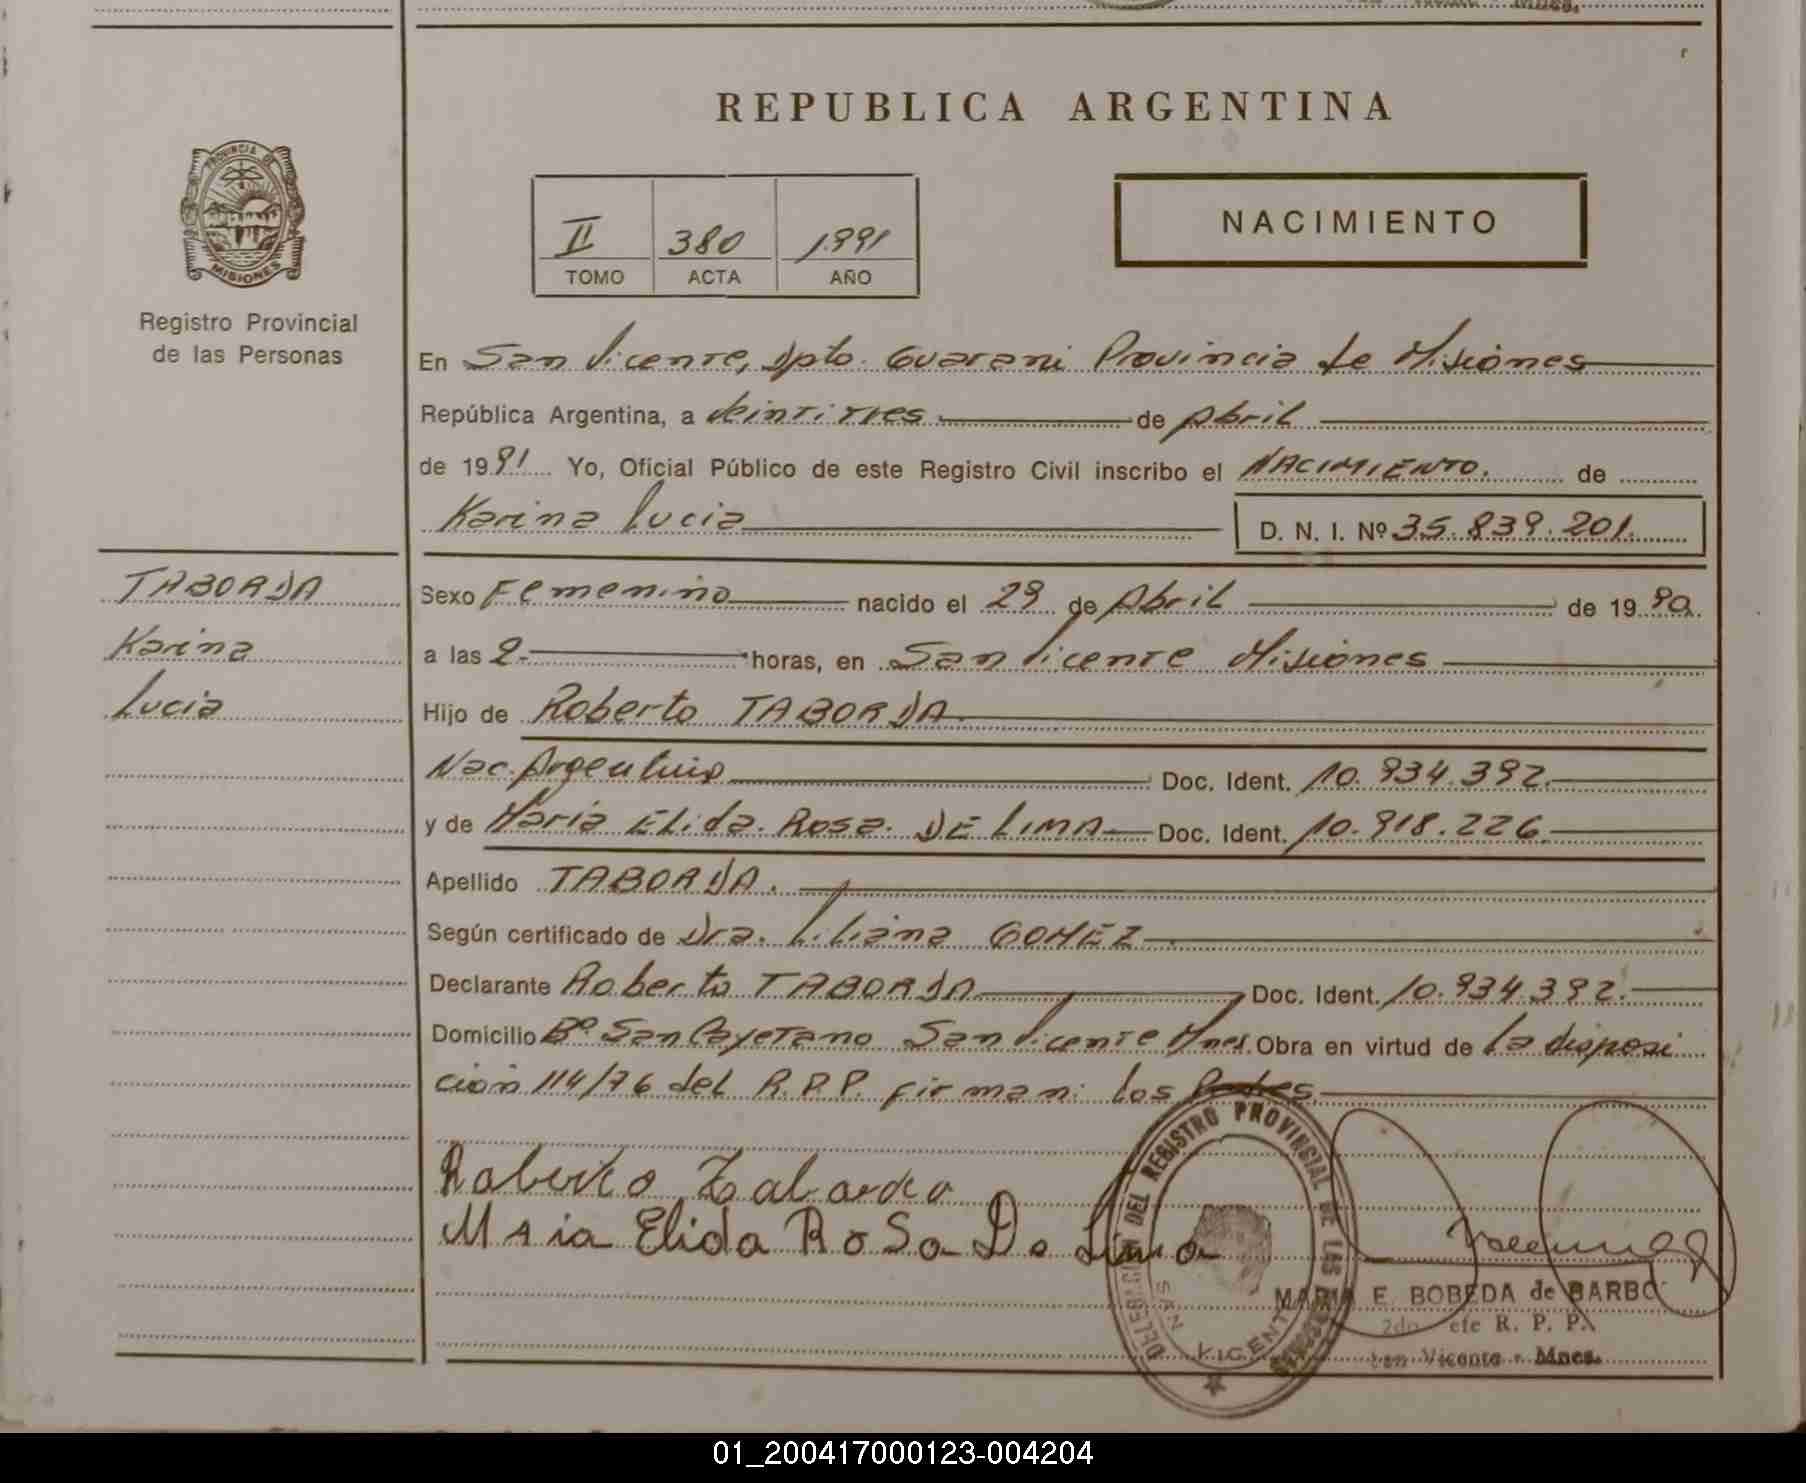 REPUBLICA ARGENTINA
PROVINCIA DE
MISIONES
Registro Provincial
de las Personas
II 380 1991
TOMO ACTA AÑO
NACIMIENTO
En San Vicente, Dpto. Guarani Provincia de Misiones
República Argentina, a veintitres de Abril
de 1991 Yo, Oficial Público de este Registro Civil inscribo el NACIMIENTO. de
Karina Lucia D. N. I. Nº 35.839.201.
TABORDA
Karina
Lucia
Sexo Femenino nacido el 29 de Abril de 1990.
a las 2. horas, en San Vicente Misiones
Hijo de Roberto TABORDA.
Nac. Argentino Doc. Ident. 10.934.392.
y de Maria Elida. Rosa. DE LIMA Doc. Ident. 10.918.226.
Apellido TABORDA.
Según certificado de Dra. Liliana GOMEZ
Declarante Roberto TABORDA Doc. Ident. 10.934.392.
Domicilio Bº San Cayetano San Vicente Mnes. Obra en virtud de la disposi
ción 114/76 del R.P.P. firman: los Padres
Roberto Taborda
Maria Elida RoSa De Lima
DEL REGISTRO PROVINCIAL DE LAS
SAN VICENTE
MARIA E. BOBEDA de BARBO
2do efe R. P. P.
San Vicente - Mnes.
01_200417000123-004204